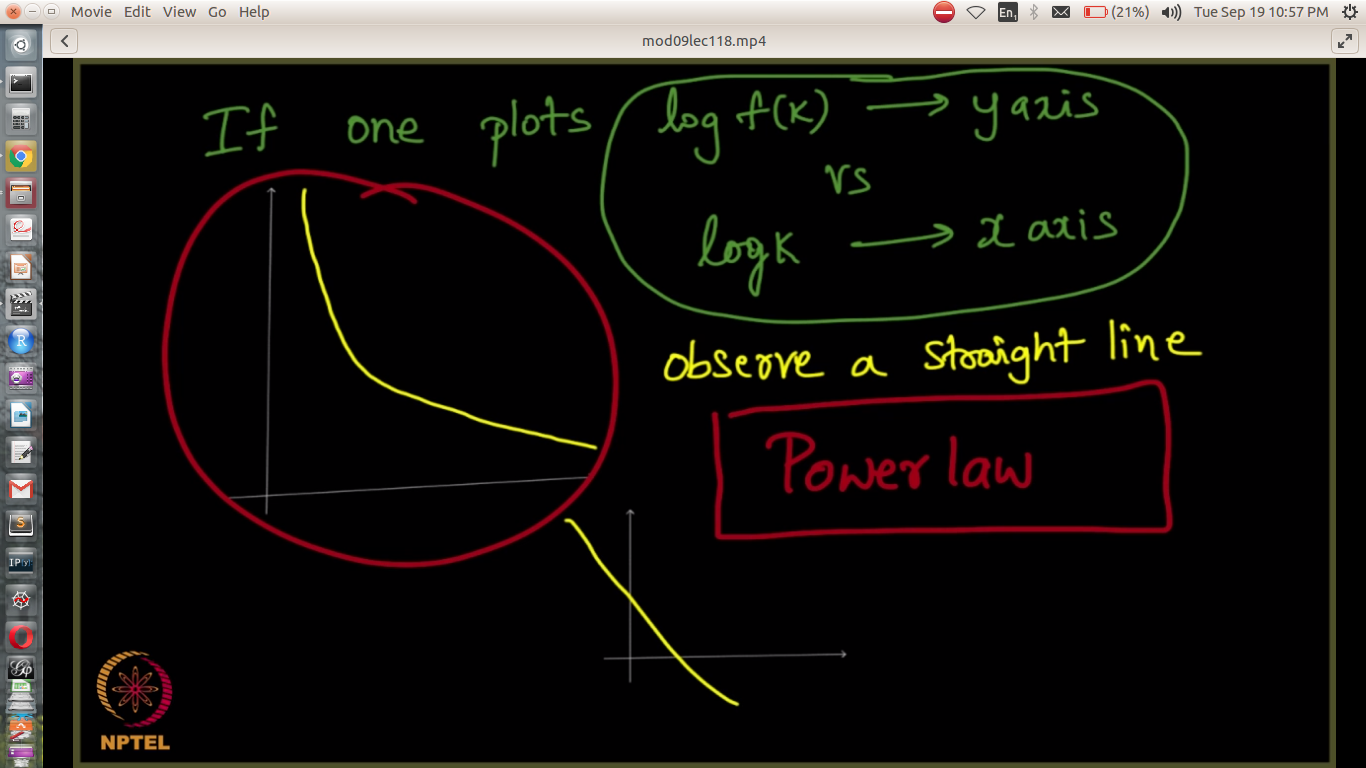 Movie Edit View Go Help
En1 (21%) Tue Sep 19 10:57 PM
mod09lec118.mp4
If one plots log f(K) → y axis
vs
log K → x axis
observe a straight line
Power law
R
S
IP[y]:
Gp
NPTEL